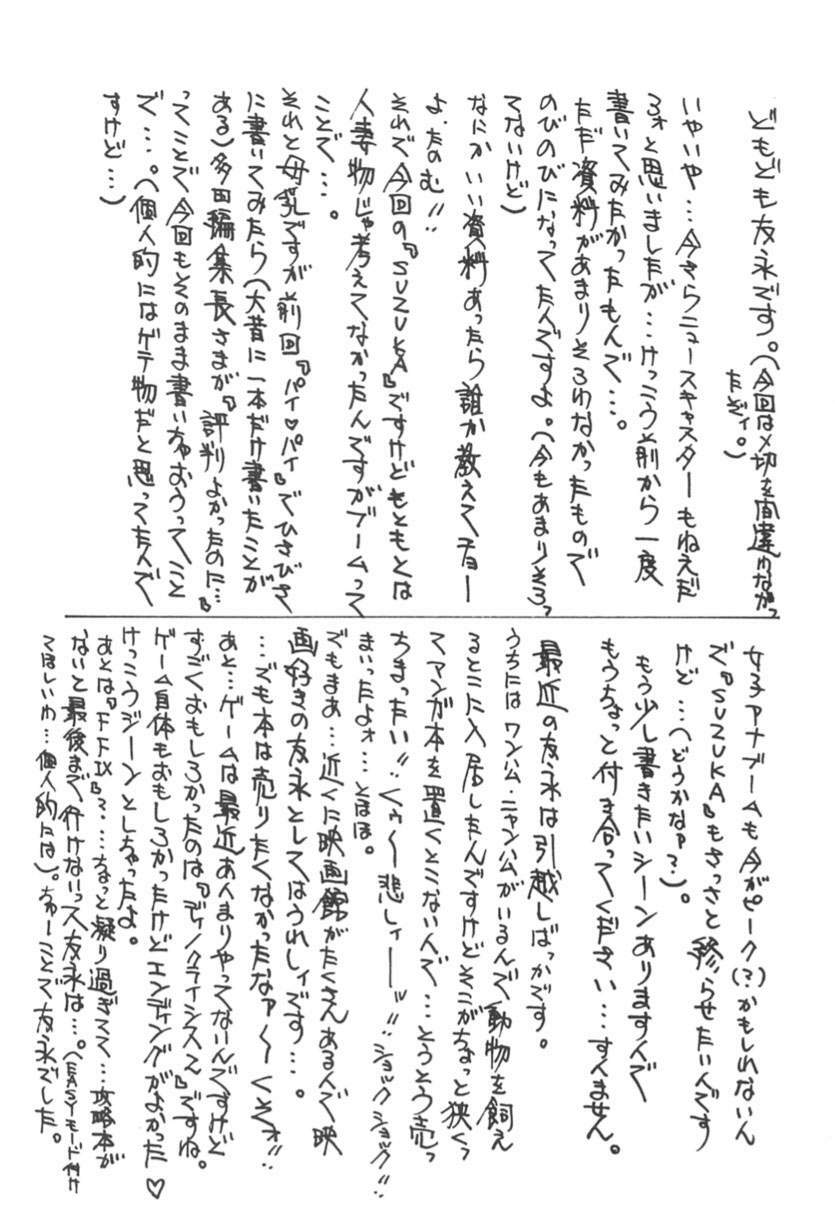 どもども友永です。(今回は〆切を間違わなかっ
たぞィ。)
いやいや…今さらニュースキャスターもねえだ
ろォと思いましたが…けっこう前から一度
書いてみたかったもんで…。
ただ資料があまりそろわなかったもので
のびのびになってたんですよ。(今もあまりそろっ
てないけど)
なにかいい資料あったら誰か教えてチョー
よ.たのむ!!
それで今回の『SUZUKA』ですけどもともとは
人妻物じゃ考えてなかったんですがブームって
ことで…。
それと母乳ですが前回『パイ♡パイ』でひさびさ
に書いてみたら(大昔に一本だけ書いたことが
ある)多田編集長さまが『評判よかったのに…』
ってことで今回もそのまま書いちゃおうってこと
で…。(個人的にはゲテ物だと思ってたんで
すけど…)
女子アナブームも今がピーク(?)かもしれないん
で『SUZUKA』もさっさと終らせたいんです
けど…(どうかなァ?)。
もう少し書きたいシーンありますんで
もうちょっと付き合ってください…すんません。
最近の友永は引越しばっかです。
うちにはワンハム・ニャンハムがいるんで動物を飼え
るとこに入居したんですけどそこがちょっと狭くっ
てマンガ本を置くとこないんで…そうそう売っ
ちまったい!!くぅ〜悲しィーッ!!ショックショック!!
まいったよォ…とほほ。
でもまあ…近くに映画館がたくさんあるんで映
画好きの友永としてはうれしィです…。
…でも本は売りたくなかったなァ〜くそォ!!
あと…ゲームは最近あんまりやってないんですけど
すごくおもしろかったのは『ディノクライシス2』ですね。
ゲーム自体もおもしろかったけどエンディングがよかった♡
けっこうジーンとしちゃったよ。
あとは『FFⅨ』?…ちょっと凝り過ぎてて…攻略本が
ないと最後まで行けないっス友永は…。(EASYモード付け
てほしいわ…個人的には)。ちゅーことで友永でした。